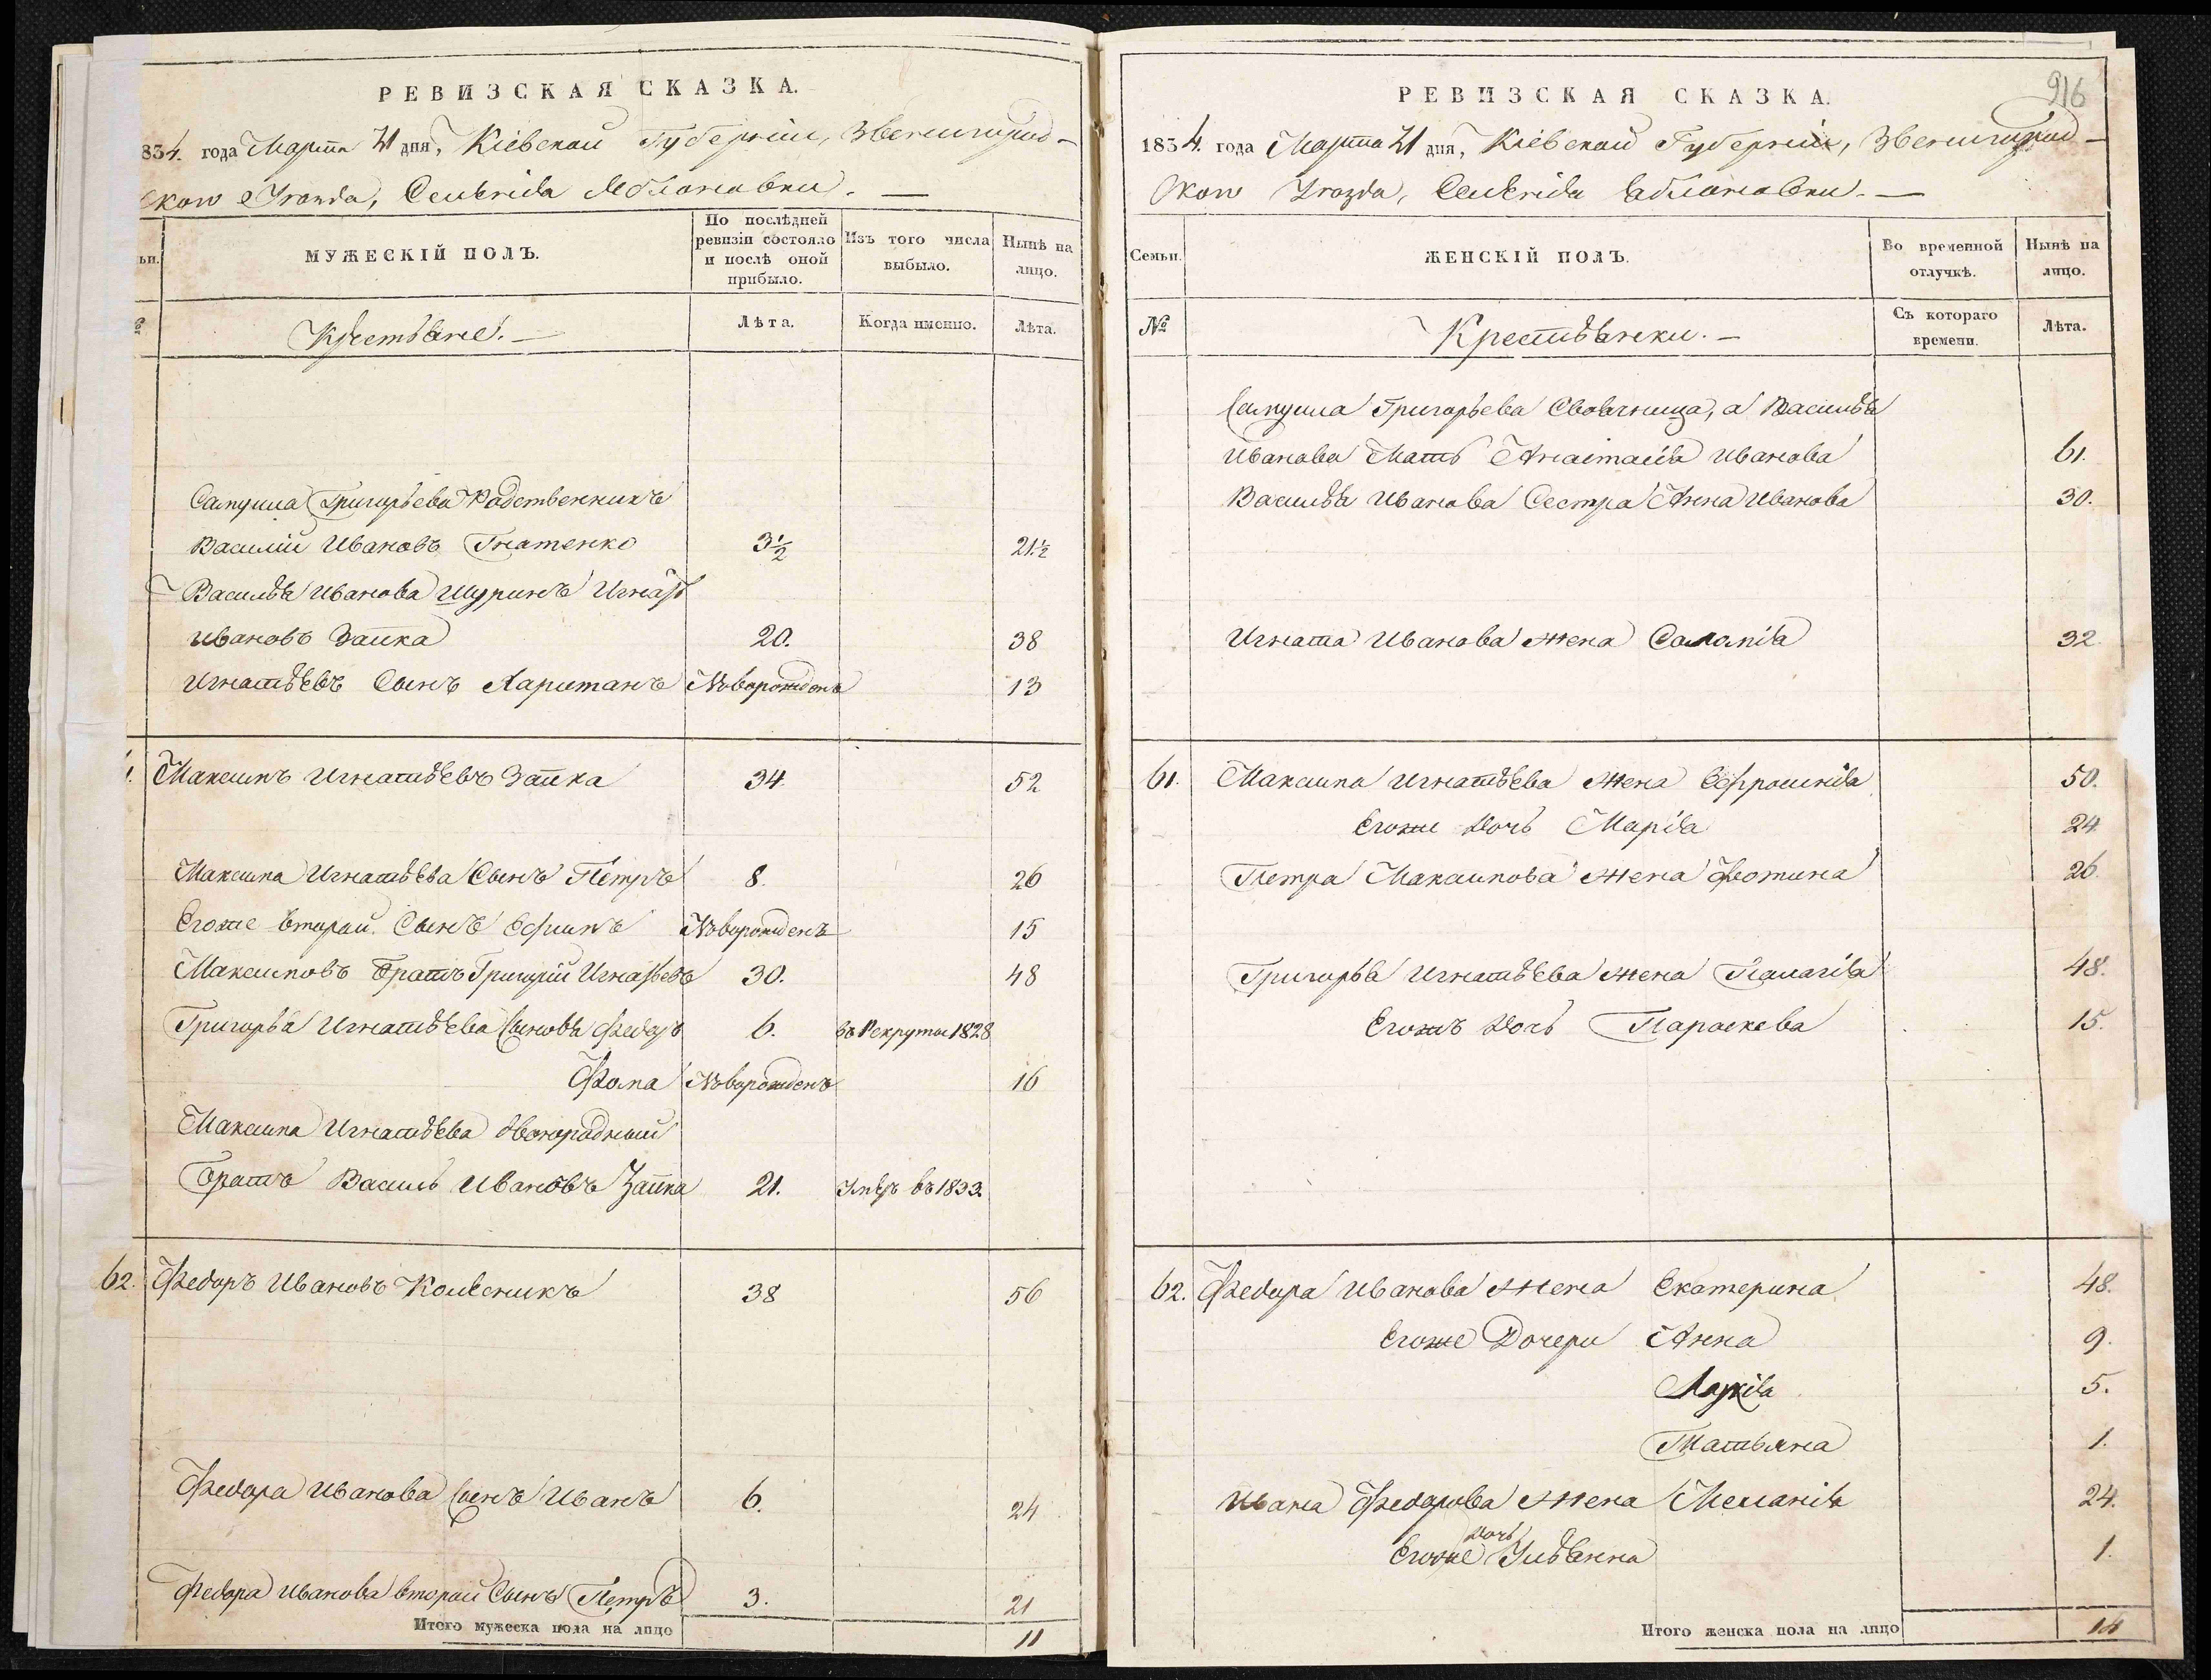 РЕВИЗСКАЯ СКАЗКА.
834. года Марта 21 дня, Кіевской Губерніи, Звенигород-
ского Уѣзда, Селенія Яблоновки. —
ьи.
МУЖЕСКІЙ ПОЛЪ.
По послѣдней ревизіи состояло и послѣ оной прибыло.
Изъ того числа выбыло.
Нынѣ на лицо.
№
Крестьяне. —
Лѣта.
Когда именно.
Лѣта.
Самуила Григорьева Родственникъ
Василій Ивановъ Гнатенко 3½ 21½
Василья Иванова Шуринъ Игнатъ
Ивановъ Заика 20. 38
Игнатьевъ Сынъ Хаританъ Новорожденъ 13
1. Максимъ Игнатьевъ Заика 34. 52
Максима Игнатьева Сынъ Петръ 8. 26
Егоже второй Сынъ Ефимъ Новорожденъ 15
Максимовъ Братъ Григорій Игнатьевъ 30. 48
Григорья Игнатьева Сыновья Федоръ 6. въ Рекруты 1828
Фома Новорожденъ 16
Максима Игнатьева двоюродный
Братъ Василь Ивановъ Заика 21. Умеръ въ 1833.
62. Федоръ Ивановъ Колесникъ 38 56
Федора Иванова Сынъ Иванъ 6. 24
Федора Иванова второй Сынъ Петръ 3. 21
Итого мужеска пола на лицо 11
916
РЕВИЗСКАЯ СКАЗКА.
1834. года Марта 21 дня, Кіевской Губерніи, Звенигород-
ского Уѣзда, Селенія Яблоновки. —
Семьи.
ЖЕНСКІЙ ПОЛЪ.
Во временной отлучкѣ.
Нынѣ на лицо.
№
Крестьянки. —
Съ котораго времени.
Лѣта.
Самуила Григорьева Своячница, а Василья
Иванова Мать Анастасія Иванова 61.
Василья Иванова Сестра Анна Иванова 30.
Игната Иванова жена Саломія 32.
61. Максима Игнатьева жена Ефросинія 50.
Егоже дочь Марія 24.
Петра Максимова жена Фотина 26.
Григорья Игнатьева жена Палагія 48.
Егожъ дочь Параскева 15.
62. Федора Иванова жена Екатерина 48.
Егоже Дочери Анна 9.
Лукія 5.
Татьяна 1.
Ивана Федорова жена Меланія 24.
Егоже дочь Ульянна 1.
Итого женска пола на лицо 14